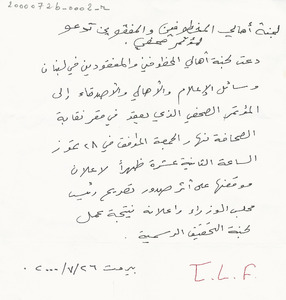 2000072b-0002-r
لجنة أهالي المخطوفين والمفقودين تدعو
لمؤتمر صحفي.
دعت لجنة أهالي المخطوفين والمفقودين في لبنان
وسائل الإعلام والأهالي والأصدقاء إلى
المؤتمر الصحفي الذي يعقد في مقر نقابة
الصحافة نهار الجمعة الموافق في ٢٨ تموز
الساعة الثانية عشرة ظهراً لاعلان
موقفها على أثر صدور تصريح رئيس
مجلس الوزراء واعلانه نتيجة عمل
لجنة التحقيق الرسمية.
بيروت ٢٠٠٠/٧/٢٦.
I.L.F.